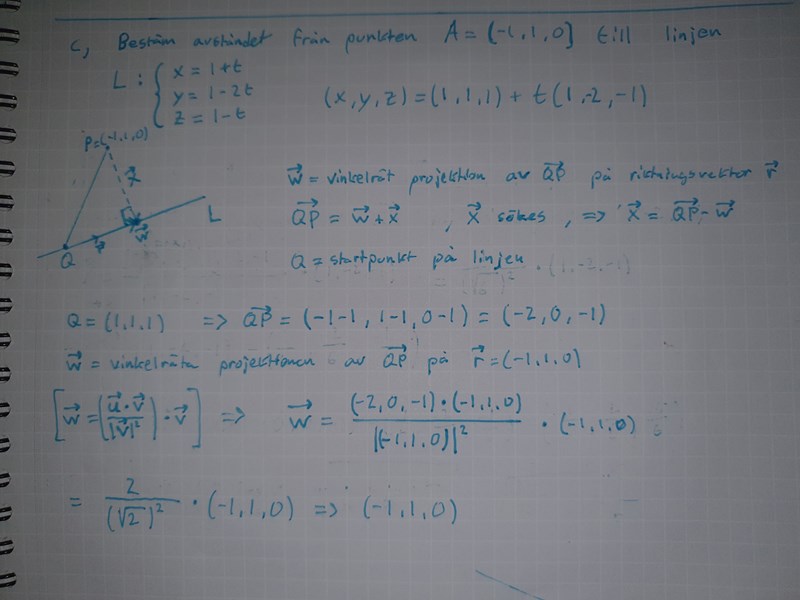 c, Bestäm avståndet från punkten A = (-1,1,0] till linjen
L : { x = 1+t
y = 1-2t
z = 1-t
(x,y,z) = (1,1,1) + t(1,-2,-1)
P=(-1,1,0)
x⃗
L
w⃗
r⃗
Q
w⃗ = vinkelrät projektion av Q⃗P⃗ på riktningsvektor r⃗
Q⃗P⃗ = w⃗+x⃗ , x⃗ sökes , => x⃗ = Q⃗P⃗-w⃗
Q = startpunkt på linjen
Q = (1,1,1) => Q⃗P⃗ = (-1-1, 1-1, 0-1) = (-2, 0, -1)
w⃗ = vinkelräta projektionen av Q⃗P⃗ på r⃗ = (-1,1,0)
[w⃗ = (u⃗·v⃗ / |v⃗|²) · v⃗] => w⃗ = (-2,0,-1)·(-1,1,0) / |(-1,1,0)|² · (-1,1,0)
= 2 / (√2)² · (-1,1,0) => (-1,1,0)